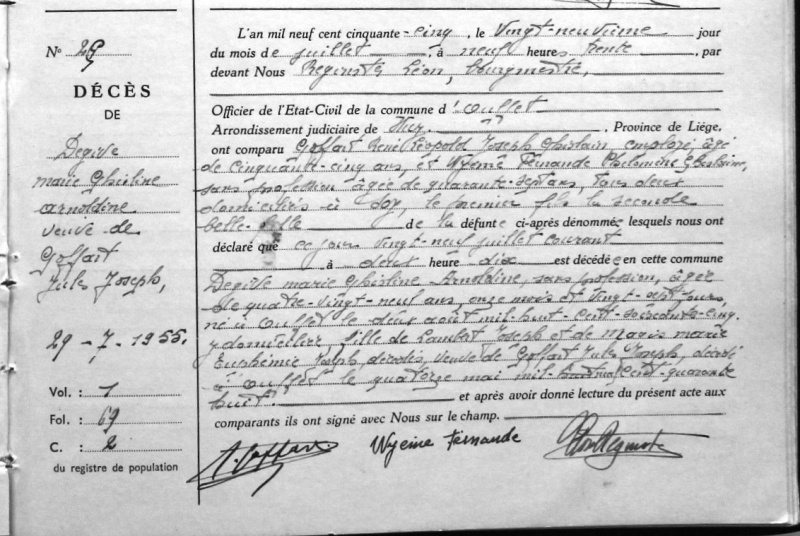 N° 29
DÉCÈS
DE
Degive
marie Ghisline
arnoldine
veuve de
Goffart
Jules Joseph,
29 - 7 - 1955.
Vol. : 1
Fol. : 69
C. : 2
du registre de population
L'an mil neuf cent cinquante-cinq, le vingt-neuvième jour
du mois de juillet, à neuf heures trente, par
devant Nous Léon, bourgmestre,
Officier de l'Etat-Civil de la commune d'Ouffet
Arrondissement judiciaire de Huy, Province de Liége,
ont comparu Goffart René Léopold Joseph Ghislain, employé, âgé
de cinquante-cinq ans, et Wyeme Fernande Philomène Ghislaine,
sans profession âgée de quarante-sept ans, tous deux
domiciliés à Huy, le premier fils la seconde
belle-fille de la défunte ci-après dénommée lesquels nous ont
déclaré que ce jour vingt-neuf juillet courant
à deux heure dix est décédée en cette commune
Degive marie Ghisline Arnoldine, sans profession, âgée
de quatre-vingt-neuf ans, onze mois et vingt-sept jours,
née à Ouffet le deux août mil-huit-cent-soixante-cinq.
y domiciliée, fille de Lambert Joseph et de marie
Euphémie Joseph, décédés, veuve de Goffart Jules Joseph, décédé
à Ouffet le quatorze mai mil-neuf-cent-quarante
huit. et après avoir donné lecture du présent acte aux
comparants ils ont signé avec Nous sur le champ.
Goffart
Wyeme Fernande